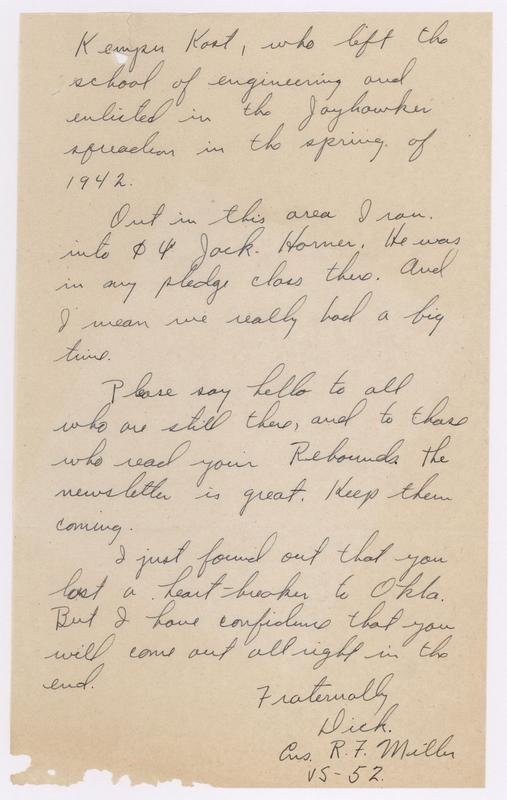 Kemper Kost, who left the
school of engineering and
enlisted in the Jayhawker
squadron in the spring of
1942.
Out in this area I ran
into Φ Ψ Jack Horner. He was
in my pledge class there. And
I mean we really had a big
time.
Please say hello to all
who are still there, and to those
who read your Rebounds. The
newsletter is great. Keep them
coming.
I just found out that you
lost a heart-breaker to Okla.
But I have confidence that you
will come out all right in the
end.
Fraternally
Dick.
Ens. R. F. Miller
VS-52.